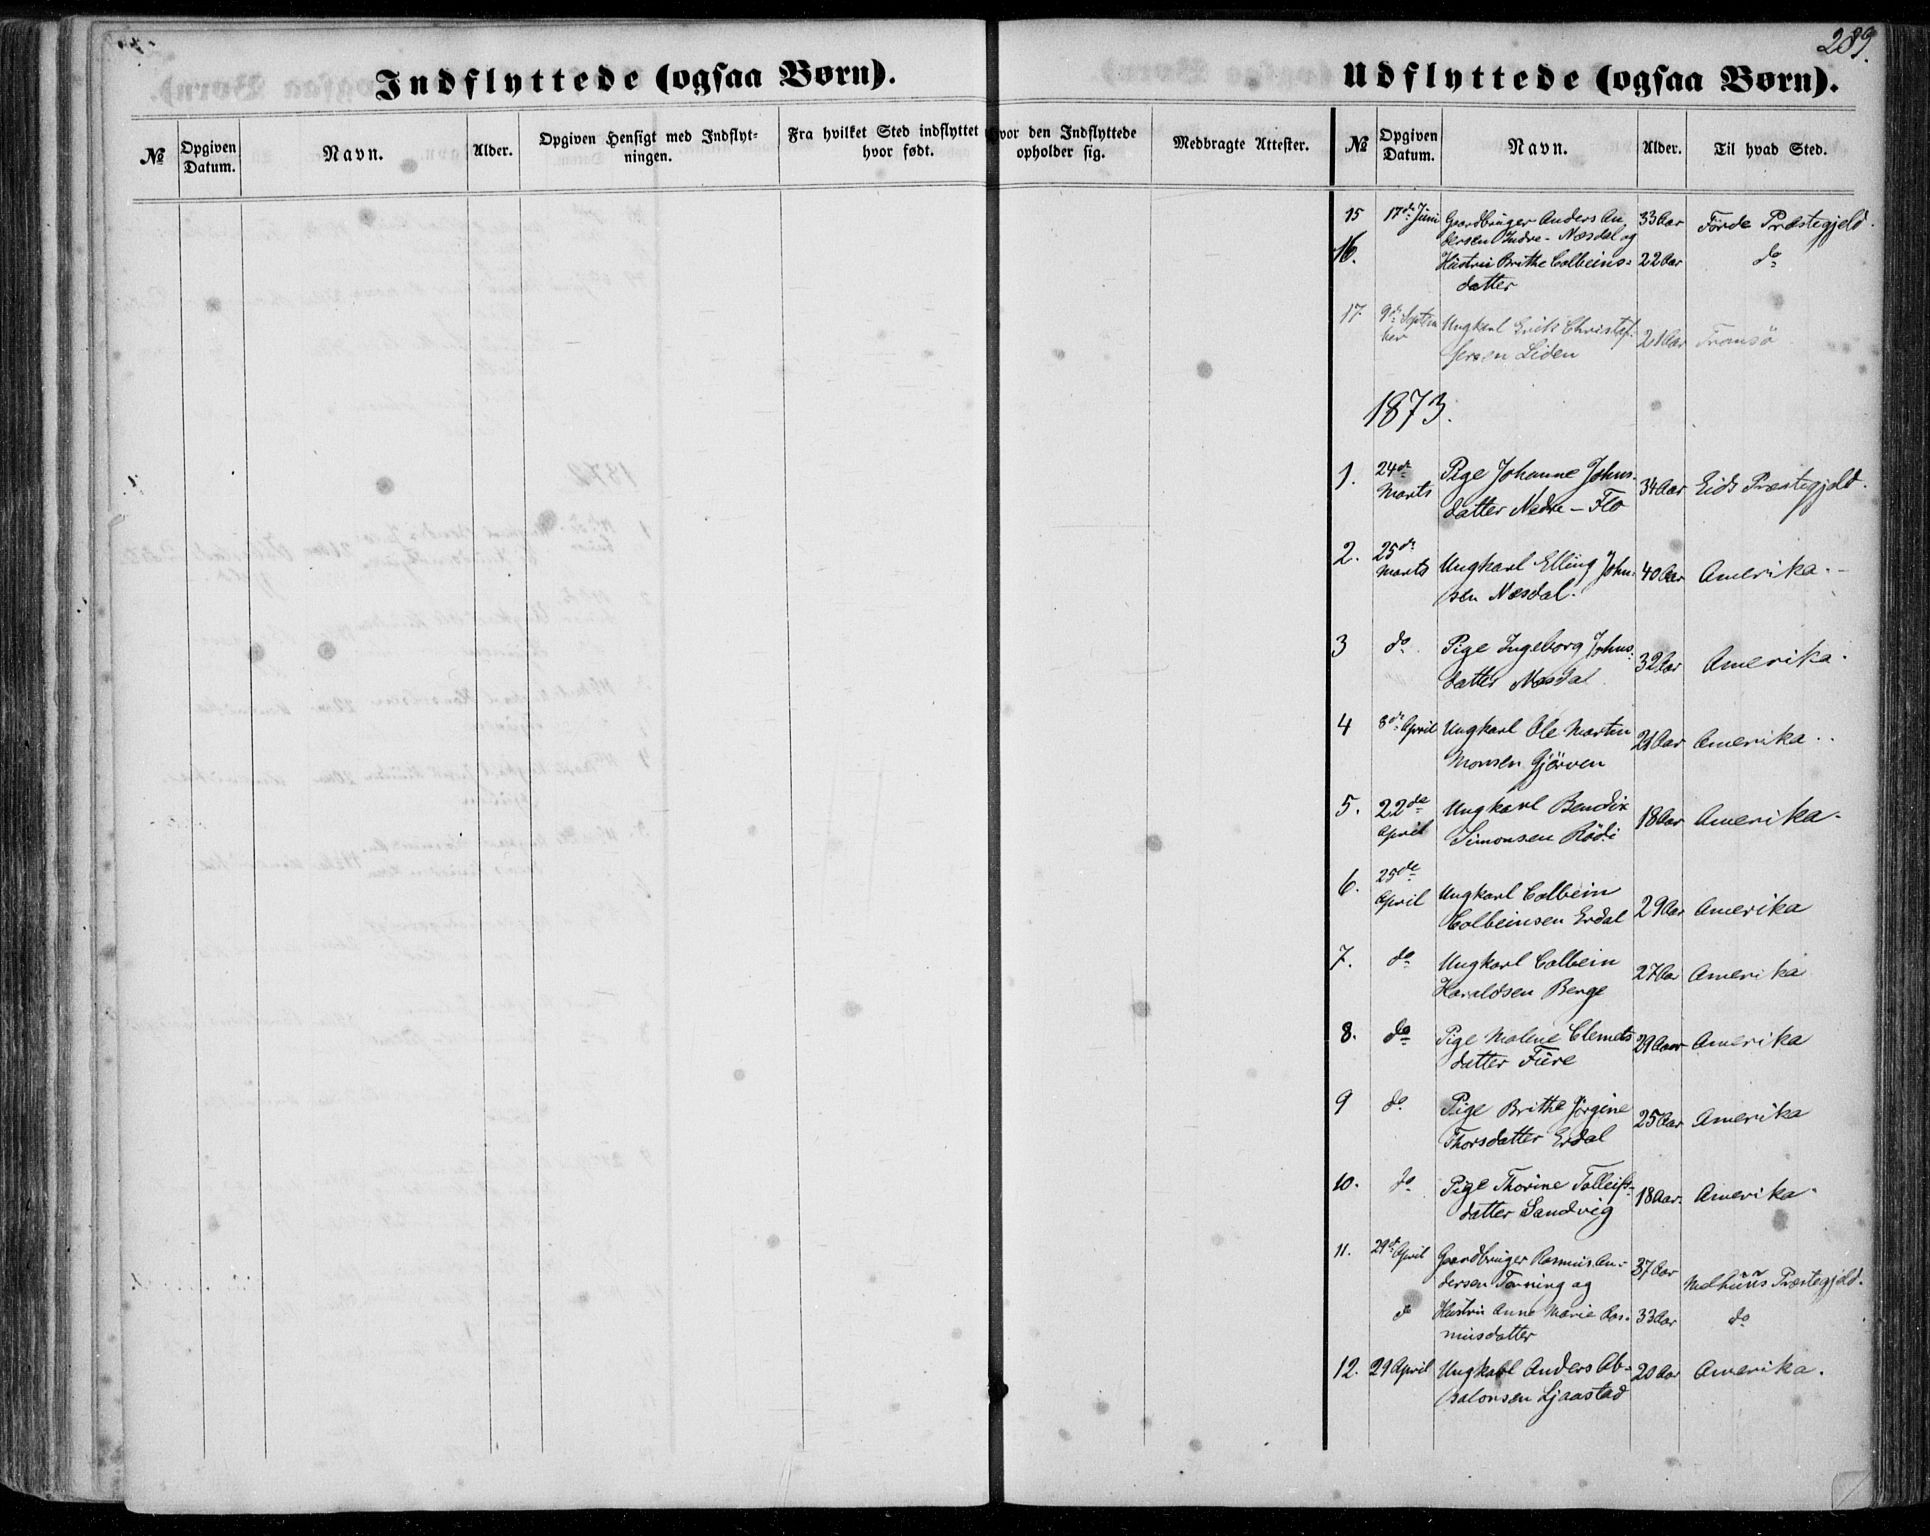 289.
Indflyttede (ogsaa Børn).
Udflyttede (ogsaa Børn).
No Opgiven Datum. Navn. Alder. Opgiven Hensigt med Indflytningen. Fra hvilket Sted indflyttet hvor født. vor den Indflyttede opholder sig. Medbragte Attester.
No Opgiven Datum. Navn. Alder. Til hvad Sted.
15 17de Juni Gaardbruger Anders An 33 Aar Førde Præstegjeld.
dersen Indre-Næsdal og
16. Hustru Brithe Colbeins= 22 Aar do
datter
17. 9de Septem Ungkarl Erik Christof- 21 Aar Tromsø
ber fersen Liden
1873.
1. 24de Pige Johanne Johns- 34 Aar Eids Præstegjeld.
Marts datter Nedre-Flo
2. 25de Ungkarl Elling John- 40 Aar Amerika.-
Marts sen Næsdal.
3 do Pige Ingeborg Johns- 32 Aar Amerika.
datter Næsdal
4 8de April Ungkarl Ole Martin 21 Aar Amerika..
Monsen Gjørven
5. 22de Ungkarl Bendix 18 Aar Amerika.
April Simonsen Rødi
6. 25de Ungkarl Colbein 29 Aar Amerika
April Colbeinsen Erdal
7. do Ungkarl Colbein 27 Aar Amerika
Haraldsen Berge
8. do Pige Malene Clemets 29 Aar Amerika
datter Fure
9 do Pige Brithe Jørgine 25 Aar Amerika
Thorsdatter Erdal
10. do Pige Thorine Tolleifs- 18 Aar. Amerika.
datter Sandvig
11. 29de April Gaardbruger Rasmus An- 37 Aar Melhuus Præstegjeld.
dersen Tenning og
do Hustru Anne Marie Ras- 33 Aar do
musdatter
12. 29 April Ungkarl Anders Ab- 20 Aar Amerika.
salonsen Ljaastad